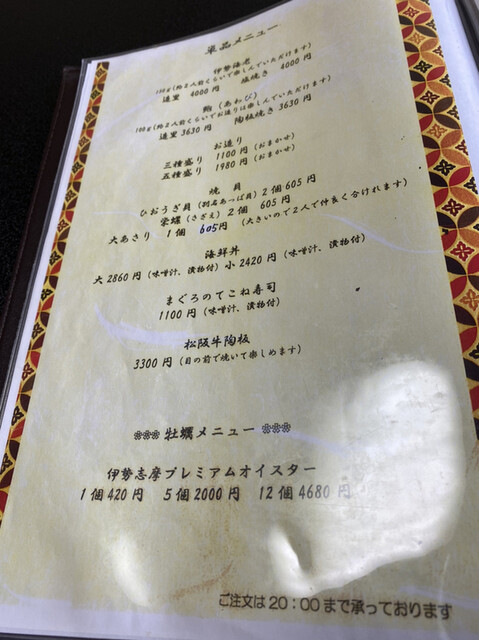 単品メニュー
伊勢海老
100g(約2人前くらいで楽しんでいただけます)
造里 4000円 塩焼き 4000円
鮑(あわび)
100g(約2人前くらいでお造りは楽しんでいただけます)
造里3630円 陶板焼き3630円
お造り
三種盛り 1100円(おまかせ)
五種盛り 1980円(おまかせ)
焼 貝
ひおうぎ貝(別名あっぱ貝)2個605円
栄螺(さざえ)2個 605円
大あさり 1個 605円 (大きいので2人で仲良く分けれます)
海鮮丼
大2860円(味噌汁、漬物付)小2420円(味噌汁、漬物付)
まぐろのてこね寿司
1100円(味噌汁、漬物付)
松阪牛陶板
3300円(目の前で焼いて楽しめます)
❀❀❀ 牡蠣メニュー ❀❀❀
伊勢志摩プレミアムオイスター
1個420円 5個2000円 12個4680円
ご注文は20:00まで承っております